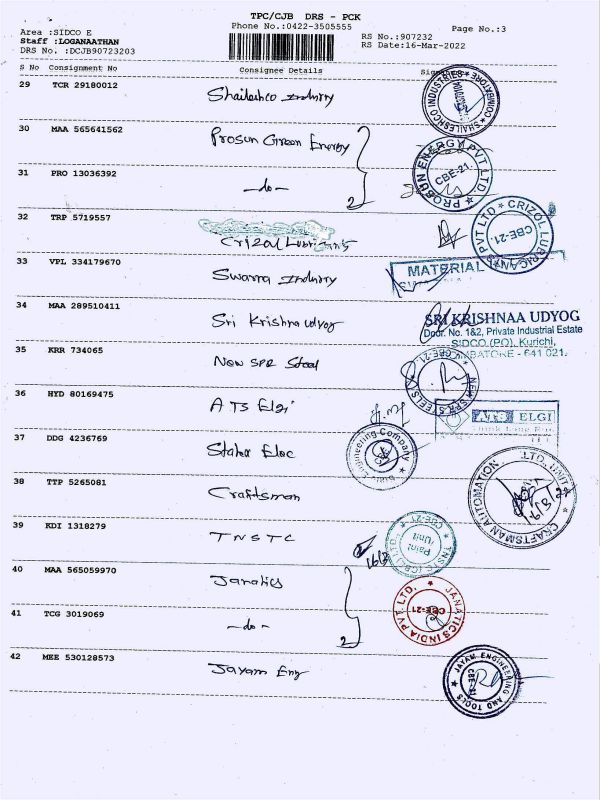 TPC/CJB DRS - PCK
Phone No.:0422-3505555
Page No.:3
Area :SIDCO E
Staff :LOGANAATHAN
DRS No. :DCJB90723203
RS No.:907232
RS Date:16-Mar-2022
S No Consignment No Consignee Details
29 TCR 29180012 Shaileshco Industry
SHAILESHCO INDUSTRIES ★ COIMBATORE
30 MAA 565641562 Prosun Green Energy
31 PRO 13036392 -do- 2
PROSUN ENERGY PVT LTD. ★ CBE-21.
32 TRP 5719557 Crizal Lubricants
CRIZOL LUBRICANT PVT LTD ★ CBE-21.
33 VPL 334179670 Swarna Industry
MATERIAL
34 MAA 289510411 Sri Krishna udyog
SRI KRISHNAA UDYOG
Door. No. 1&2, Private Industrial Estate
SIDCO (PO), Kurichi,
COIMBATORE - 641 021.
35 KRR 734065 New SPR Steel
NEW SPR STEELS ★ CBE-21
36 HYD 80169475 ATS Elgi
ATS ELGI
37 DDG 4236769
Engineering Company
38 TTP 5265081 Craftsman
CRAFTSMAN AUTOMATION LTD. UNIT
39 KDI 1318279 TNSTC
TNSTC (CBE) LTD. CBE-21
Paint
Unit
40 MAA 565059970 Janatics
41 TCG 3019069 -do- 2
JANATICS INDIA PVT. LTD. ★ CBE-21
42 MEE 530128573 Jayam Eng
JAYAM ENGINEERING AND TOOLS ★ CBE-21